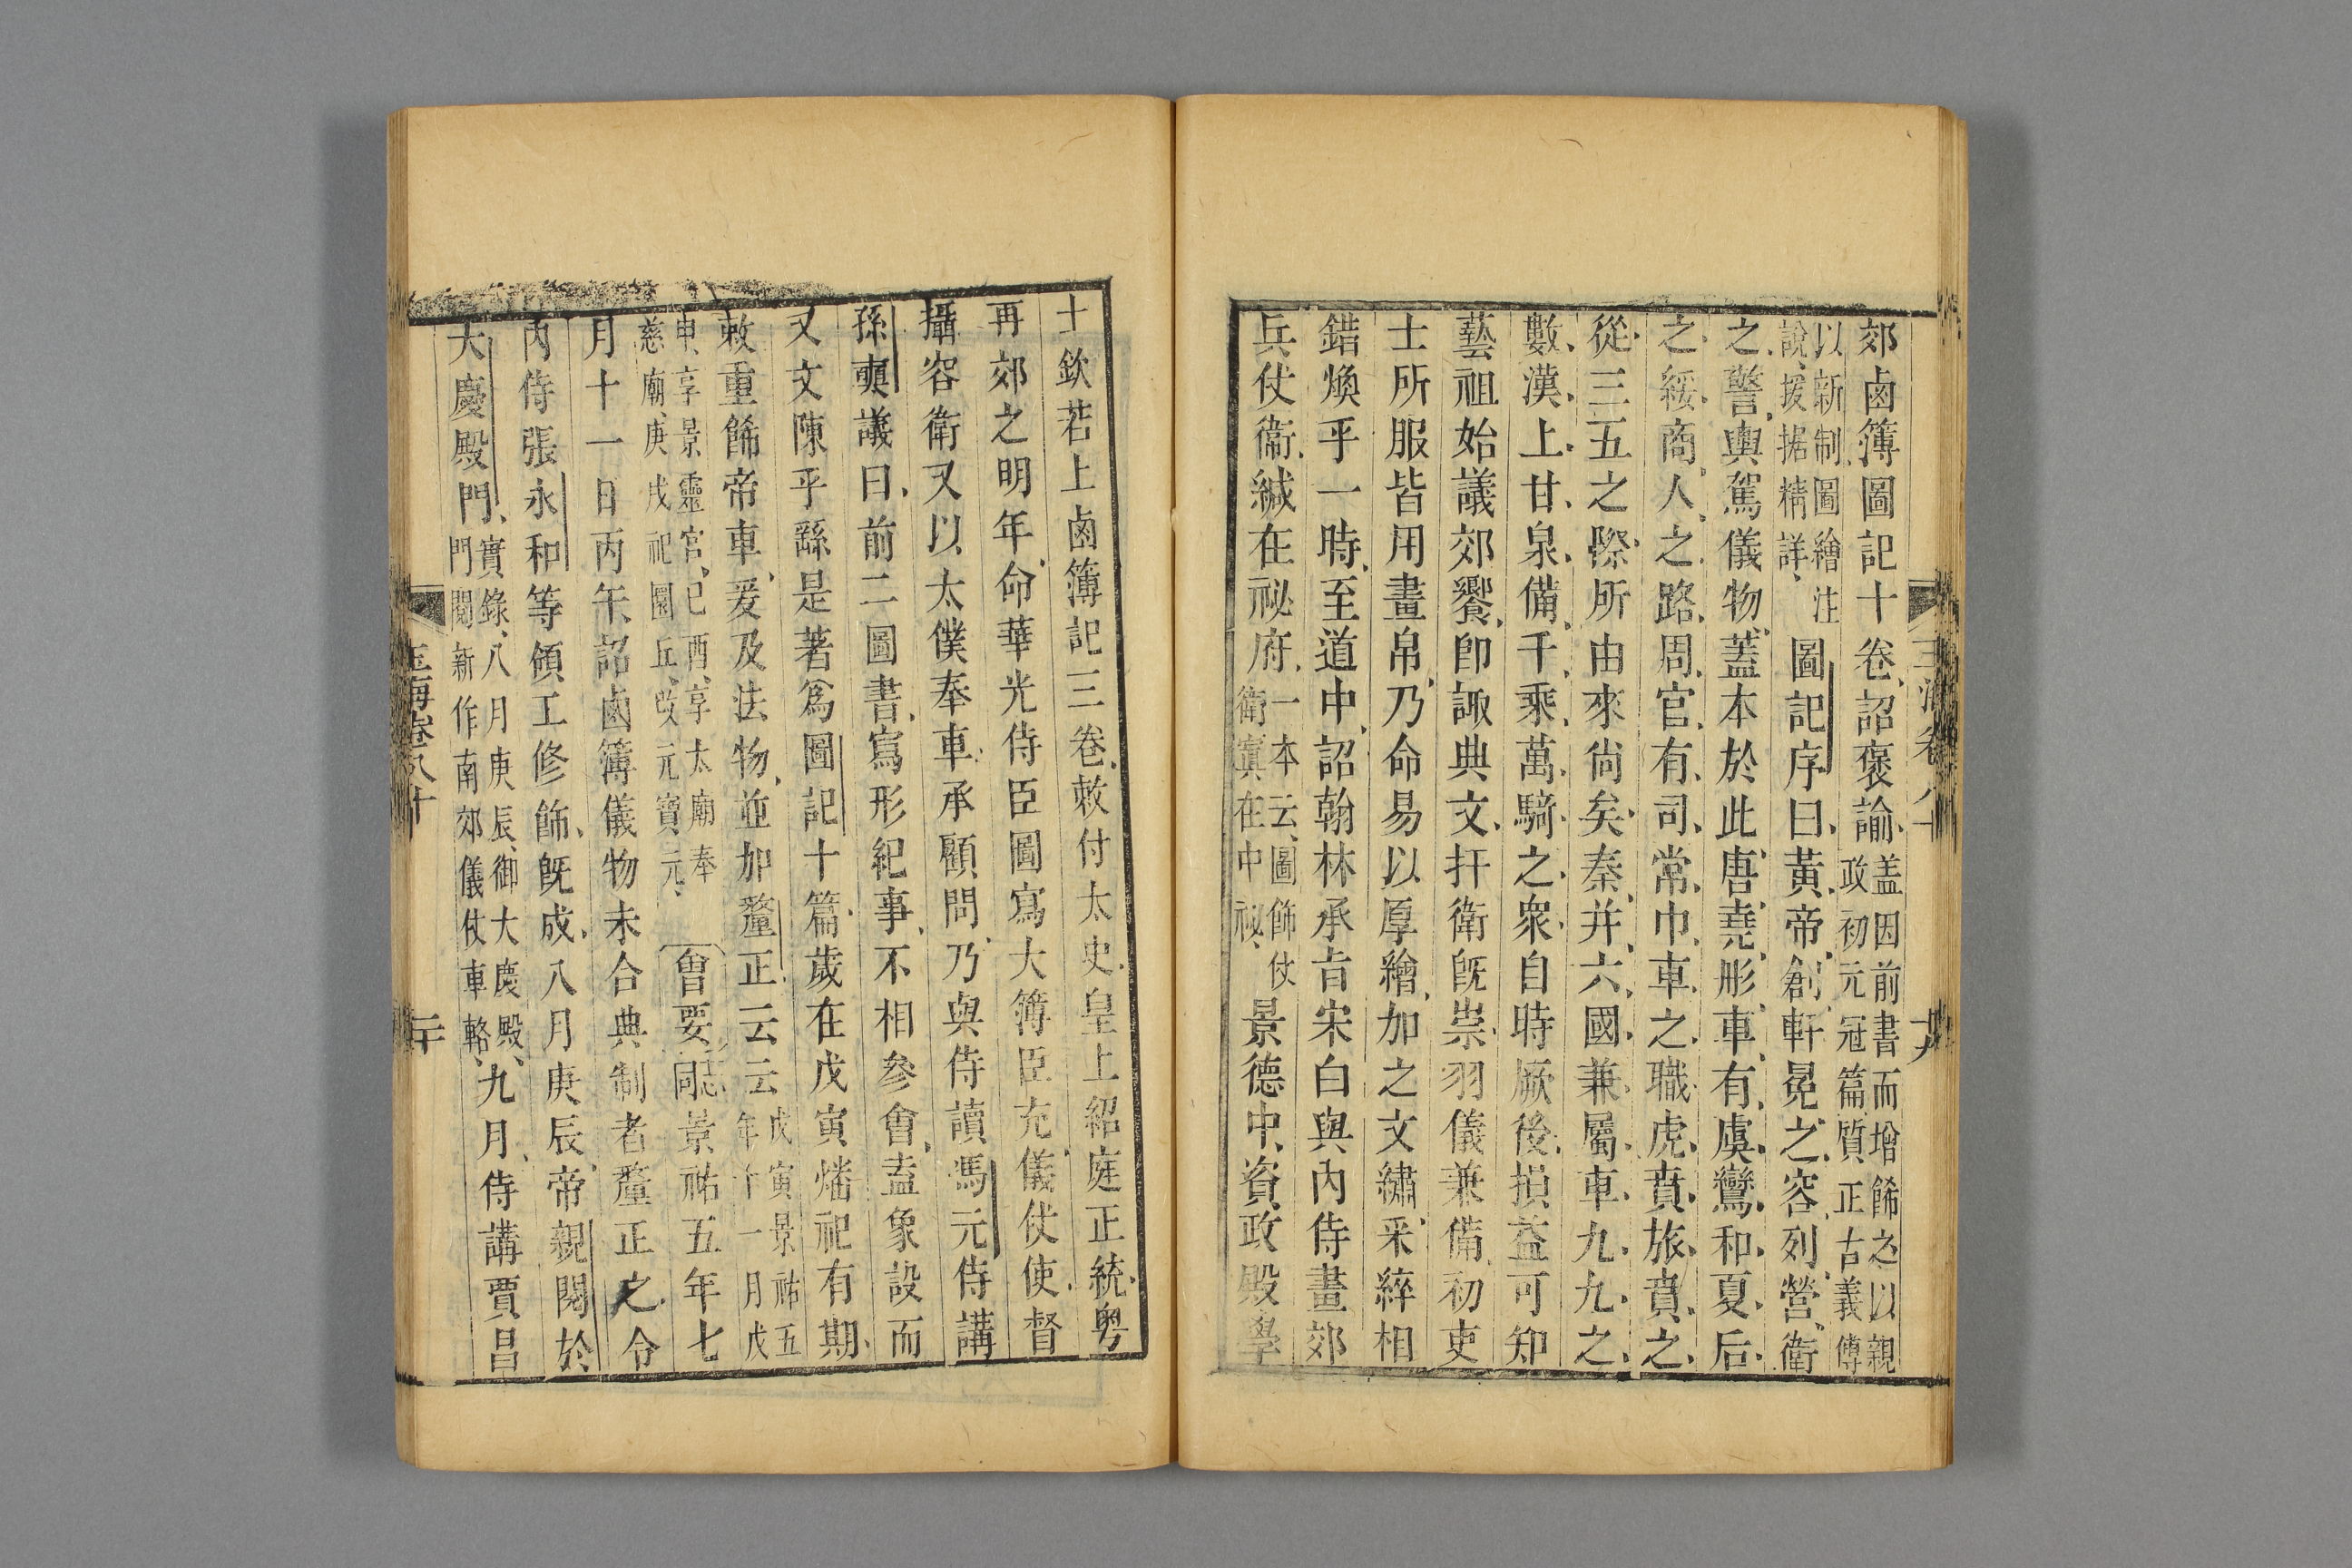 郊鹵簿圖記十卷詔褒諭盖因前書而增餙之以親
政初元冠篇質正古義傅
以新制圖繪注
說援据精詳圖記序曰黃帝創軒冕之容列營衛
之警輿駕儀物蓋本於此唐堯彤車有虞鸞和夏后
之綏商人之路周官有司常巾車之職虎賁旅賁之
從三五之際所由來尚矣秦并六國兼屬車九九之
數漢上甘泉備千乘萬騎之衆自時厥後損益可知
藝祖始議郊饗即諏典文扞衛旣崇羽儀兼備初吏
士所服皆用畫帛乃命易以厚繒加之文繡采綷相
錯煥乎一時至道中詔翰林承旨宋白與內侍畫郊
兵仗衞緘在祕府一本云圖飾仗
衛寘在中祕景德中資政殿學
士欽若上鹵簿記三卷敕付太史皇上紹庭正統粤
再郊之明年命華光侍臣圖寫大簿臣充儀仗使督
攝容衛又以太僕奉車承顧問乃與侍讀馮元侍講
孫奭議曰前二圖書寫形紀事不相參會盍象設而
又文陳乎繇是著爲圖記十篇歲在戊寅燔祀有期
敕重餙帝車爰及法物並加釐正云云戊寅景祐五
年十一月戊
申享景靈宮己酉享太廟奉
慈廟庚戌祀圜丘改元寶元會要同志景祐五年七
月十一日丙午詔鹵簿儀物未合典制者釐正之令
內侍張永和等領工修飾旣成八月庚辰帝親閱於
大慶殿門實錄八月庚辰御大慶殿
門閱新作南郊儀仗車輅九月侍講賈昌
玉海卷八十
二十
玉海卷八十
十九